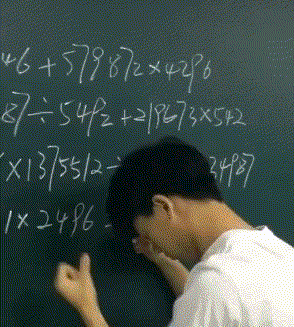 46 + 579872 × 4296
87 ÷ 5492 + 219673 × 542
× 1375512 ÷ 34987
1 × 2496 -